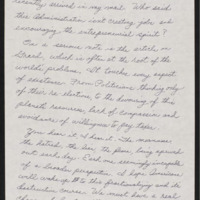 recently arrived in my mail. Who said
this Administration isn't creating jobs and
encouraging the entrepreneurial spirit?
On a serious note is the article on
Greed, which is often at the root of the
world's problems. It touches every aspect
of existence. From Politicians thinking only
of their re-election to the hoarding of this
planets resources, lack of compassion and
avoidance of willingness to pay taxes.
You hear it I hear it. The
the hatred, the fear, the
out each day. Each one seemingly incapable
of a broader perspective. I hope Americans
will wake up to this and do
destructive course. We must have a real